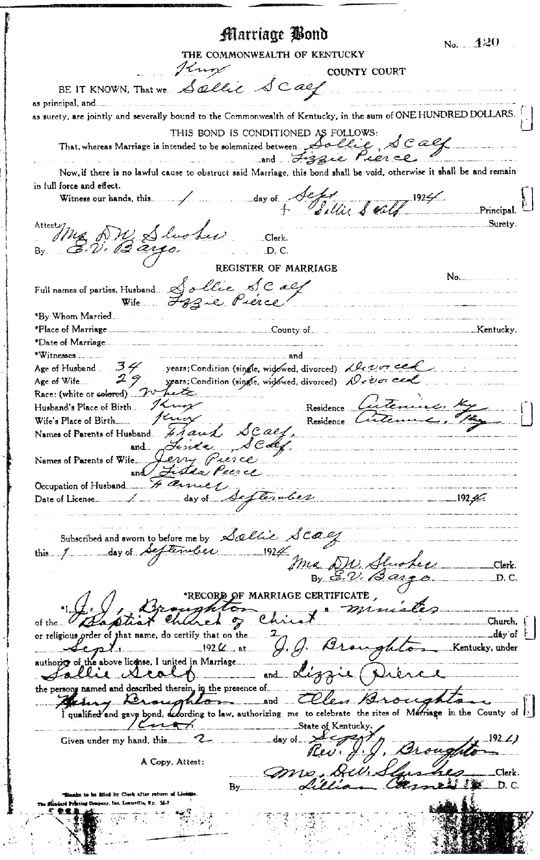 Marriage Bond
No. 120
THE COMMONWEALTH OF KENTUCKY
Knox COUNTY COURT
BE IT KNOWN, That we Sollie Scalf
as principal, and
as surety, are jointly and severally bound to the Commonwealth of Kentucky, in the sum of ONE HUNDRED DOLLARS.
THIS BOND IS CONDITIONED AS FOLLOWS:
That, whereas Marriage is intended to be solemnized between Sollie Scalf
and Lizzie Pierce
Now, if there is no lawful cause to obstruct said Marriage, this bond shall be void, otherwise it shall be and remain
in full force and effect.
Witness our hands, this 1 day of Sept 1924
Sollie Scalf Principal.
Surety.
Attest: Mrs D.W. Slusher Clerk.
By E.V. Bargo. D. C.
REGISTER OF MARRIAGE
No.
Full names of parties, Husband Sollie Scalf
Wife Lizzie Pierce
*By Whom Married
*Place of Marriage County of Kentucky.
*Date of Marriage
*Witnesses and
Age of Husband 34 years; Condition (single, widowed, divorced) Divorced
Age of Wife 29 years; Condition (single, widowed, divorced) Divorced
Race: (white or colored) White
Husband's Place of Birth Knox Residence Artemus, Ky
Wife's Place of Birth Knox Residence Artemus, Ky
Names of Parents of Husband Frank Scalf,
and Linda Scalf.
Names of Parents of Wife Jerry Pierce
and Pierce
Occupation of Husband Farmer
Date of License 1 day of September 1924
Subscribed and sworn to before me by Sollie Scalf
this 1 day of September 1924
Mrs D.W. Slusher Clerk.
By E.V. Bargo. D. C.
*RECORD OF MARRIAGE CERTIFICATE.
*I, J. J. Broughton, a Minister
of the Baptist Church of Christ Church,
or religious order of that name, do certify that on the 2 day of
Sept. 1924 at J. J. Broughton Kentucky, under
authority of the above license, I united in Marriage
Sollie Scalf and Lizzie Pierce
the persons named and described therein, in the presence of
Henry Broughton and Ellen Broughton
I qualified and gave bond, according to law, authorizing me to celebrate the rites of Marriage in the County of
Knox State of Kentucky.
Given under my hand, this 2 day of Sept 192
Rev. J. J. Broughton
A Copy, Attest:
Mrs. D.W. Slusher Clerk.
By Lillian D. C.
*Blanks to be filed by Clerk after return of License.
The Standard Printing Company, Inc. Louisville, Ky.